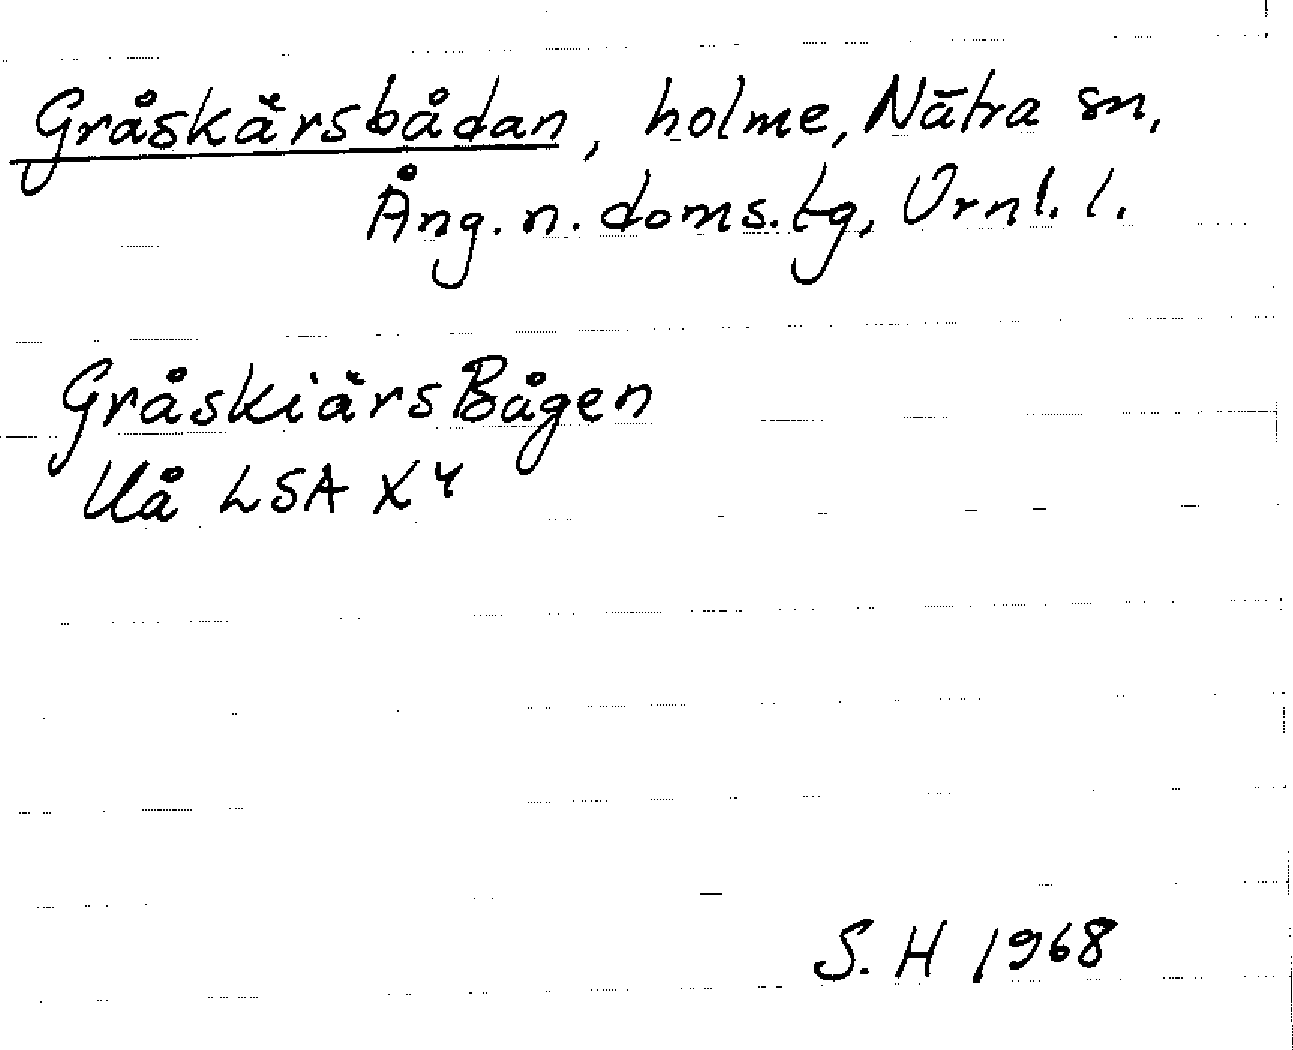 Gråskärsbådan, holme, Nätra sn,
Ång. n. doms.tg, Vrnl. l.
GråskiärsBågen
Uå LSA X4
S. H 1968